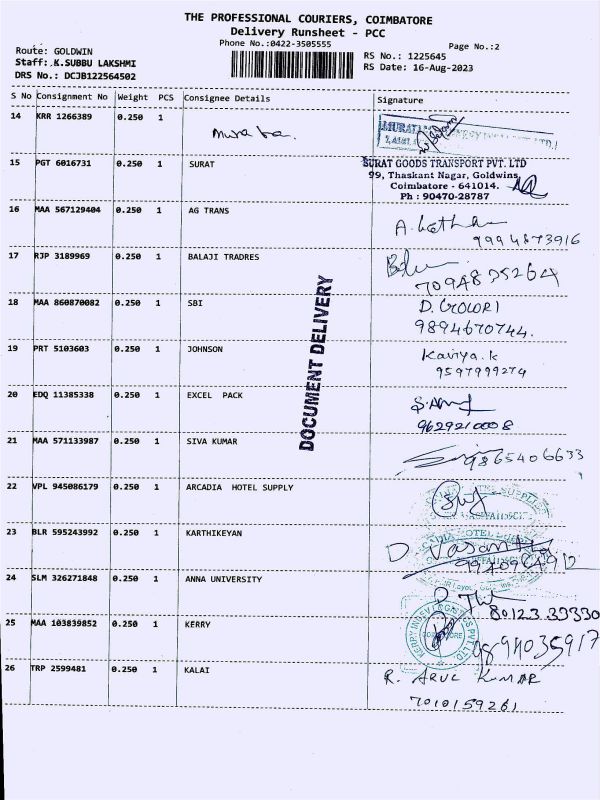 THE PROFESSIONAL COURIERS, COIMBATORE
Delivery Runsheet - PCC
Phone No.:0422-3505555
Page No.:2
Route: GOLDWIN
Staff: K.SUBBU LAKSHMI
DRS No.: DCJB122564502
RS No.: 1225645
RS Date: 16-Aug-2023
S No Consignment No Weight PCS Consignee Details Signature
14 KRR 1266389 0.250 1
15 PGT 6016731 0.250 1 SURAT
SURAT GOODS TRANSPORT PVT. LTD
99, Thaskant Nagar, Goldwins
Coimbatore - 641014.
Ph : 90470-28787
16 MAA 567129404 0.250 1 AG TRANS
9994873916
17 RJP 3189969 0.250 1 BALAJI TRADRES
7094835264
18 MAA 860870082 0.250 1 SBI D. GOWRI
9894670744.
19 PRT 5103603 0.250 1 JOHNSON Kaviya.k
9597999274
20 EDQ 11385338 0.250 1 EXCEL PACK
9629210008
21 MAA 571133987 0.250 1 SIVA KUMAR
9865406633
22 VPL 945086179 0.250 1 ARCADIA HOTEL SUPPLY
23 BLR 595243992 0.250 1 KARTHIKEYAN
24 SLM 326271848 0.250 1 ANNA UNIVERSITY
80123 33330
25 MAA 103839852 0.250 1 KERRY
KERRY INDEV LOGISTICS PVT. LTD.
9894035917
26 TRP 2599481 0.250 1 KALAI R. ARUL KUMAR
7010159261
DOCUMENT DELIVERY